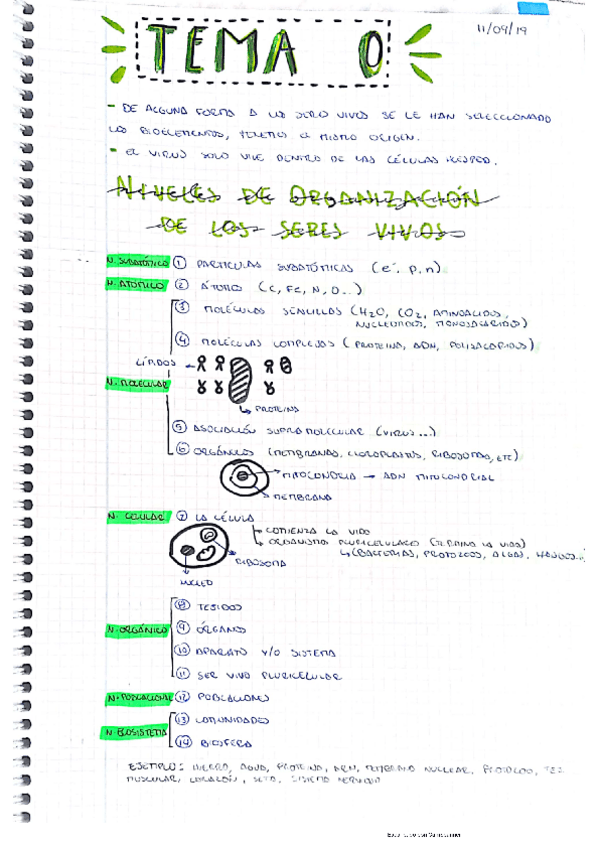 TEMA 0
11/09/19
- DE ALGUNA FORMA A LOS SERES VIVOS SE LE HAN SELECCIONADO
LOS BIOELEMENTOS, TENEMOS EL MISMO ORIGEN.
- EL VIRUS SOLO VIVE DENTRO DE LAS CÉLULAS HUESPED.
NIVELES DE ORGANIZACIÓN
DE LOS SERES VIVOS
N. SUBATÓMICO ① PARTICULAS SUBATÓMICAS (e⁻, p, n).
N. ATOMICO ② ÁTOMO (C, Fe, N, O...)
③ MOLÉCULAS SENCILLAS (H₂O, CO₂, AMINOACIDOS,
NUCLEOTIDOS, MONOSACARIDOS)
④ MOLÉCULAS COMPLEJAS (PROTEINA, ADN, POLISACARIDOS)
LÍPIDOS
N. MOLECULAR
PROTEINA
⑤ ASOCIACIÓN SUPRAMOLECULAR (VIRUS...)
⑥ ORGÁNULOS (MEMBRANAS, CLOROPLASTOS, RIBOSOMAS, ETC)
MITOCONDRIA → ADN MITOCONDRIAL
MEMBRANA
N. CELULAR ⑦ LA CÉLULA
COMIENZA LA VIDA
(BACTERIAS, PROTOZOOS, ALGAS, HONGOS...
RIBOSOMA
NUCLEO
⑧ TEJIDOS
N. ORGÁNICO ⑨ ÓRGANOS
⑩ APARATO Y/O SISTEMA
⑪ SER VIVO PLURICELULAR
N. POBLACIONAL ⑫ POBLACIONES
⑬ COMUNIDADES
N. ECOSISTEMA
⑭ BIOSFERA
EJEMPLO: AGUA, PROTEINA, MEMBRANA NUCLEAR,
MUSCULAR, CORAZÓN, SETA, SISTEMA NERVIOSO